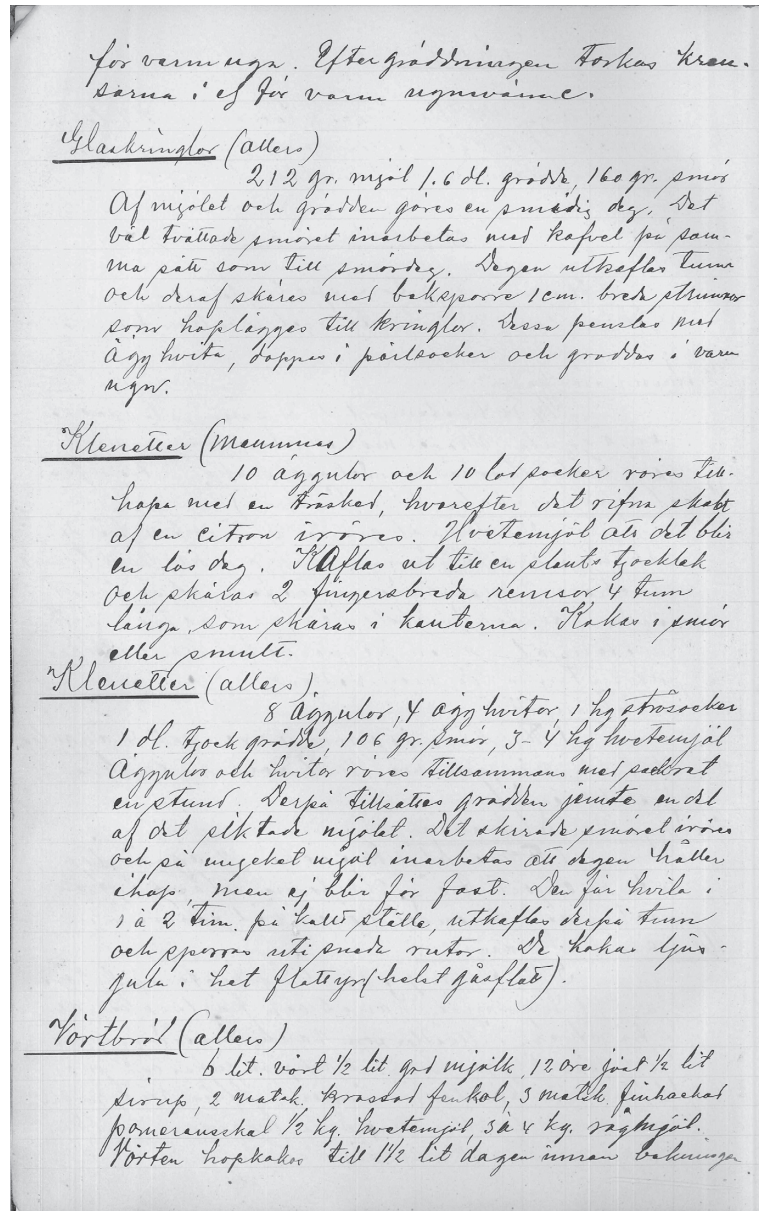 för varm ugn. Efter gräddningen torkas kran-
sarna i ej för varm ugnsvärme.
Glaskringlor (allers)
212 gr. mjöl 1.6 dl. grädde, 160 gr. smör
Af mjölet och grädden göres en smidig deg. Det
väl tvättade smöret inarbetas med kafvel på sam-
ma sätt som till smördeg. Degen utkaflas tunn
och deraf skäres med baksporre 1 cm. breda strimmor
som hoplägges till kringlor. Dessa penslas med
Ägghvita, doppas i pärlsocker och gräddas i varm
ugn.
Klenetter (Mammas)
10 äggulor och 10 lod socker röres till-
hopa med en träsked, hvarefter det rifna skalet
af en citron iröres. Hvetemjöl att det blir
en lös deg. Kaflas ut till en slants tjocklek
och skäras 2 fingersbreda remsor 4 tum
långa, som skäras i kanterna. Kokas i smör
eller smult.
Klenetter (allers)
8 Äggulor, 4 ägghvitor, 1 hg strösocker
1 dl. tjock grädde, 106 gr. smör, 3-4 hg hvetemjöl
Äggulor och hvitor röres tillsammans med sockret
en stund. Derpå tillsättes grädden jemte en del
af det siktade mjölet. Det skirade smöret iröres
och så mycket mjöl inarbetas att degen håller
ihop, men ej blir för fast. Den får hvila i
1 à 2 tim. på kallt ställe, utkaflas derpå tunn
och sporras uti sneda rutor. De kokas ljus-
gula i het flottyr (helst gåsflott).
Vörtbröd (allers)
6 lit. vört 1/2 lit. god mjölk, 12 öre jäst 1/2 lit
sirup, 2 matsk. krossad fenkol, 3 matsk. finhackad
pomeransskal 1/2 kg. hvetemjöl, 3 à 4 kg. rågmjöl.
Vörten hopkokas till 1 1/2 lit dagen innan bakningen